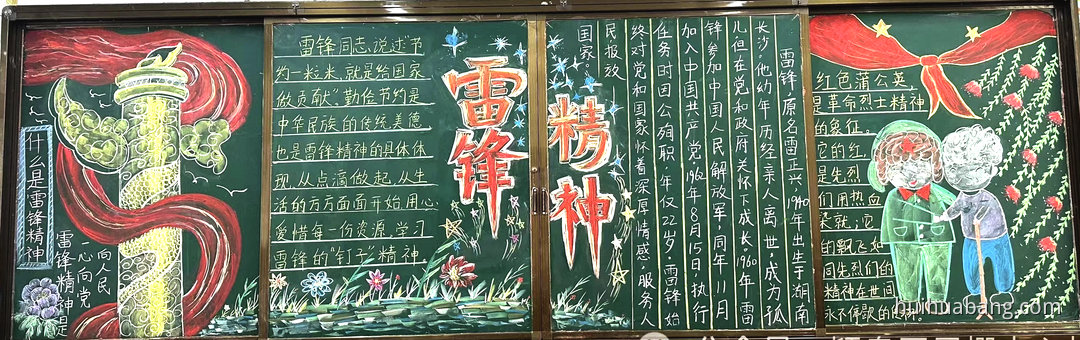 什么是雷锋精神
雷锋精神是
一心向党
向人民
雷锋同志,说过节
约一粒米,就是给国家
做贡献”,勤俭节约是
中华民族的传统美德
也是雷锋精神的具体体
现,从点滴做起,从生
活的方方面面开始,用心
爱惜每一份资源,学习
雷锋的“钉子”精神
雷锋
精神
雷锋,原名雷正兴,1940年出生于湖南
长沙,他幼年历经亲人离世,成为孤
儿但在党和政府关怀下成长,1960年雷
锋参加中国人民解放军,同年11月
加入中国共产党,1962年8月15日,执行
任务时因公殉职,年仅22岁,雷锋始
终对党和国家怀着深厚情感,服务人
民报放
国家。
红色蒲公英,
是革命烈士精神
的象征。
它的红,
是先烈
们用热血
就;它
的飘飞如
同先烈们的
精神在世间
永不停歇的
huihuabang.com